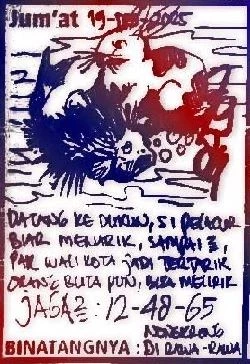 Jum'at 19-2025
DATANG KE DUKUN, SI PELACUR
BIAR MENARIK, SAMPAI2,
PAK WALI KOTA JADI TERTARIK
ORANG BUTA PUN, BISA MELIRIK
JAGA2 : 12-48-65
NONGKRONG
BINATANGNYA : DI RAWA-RAWA